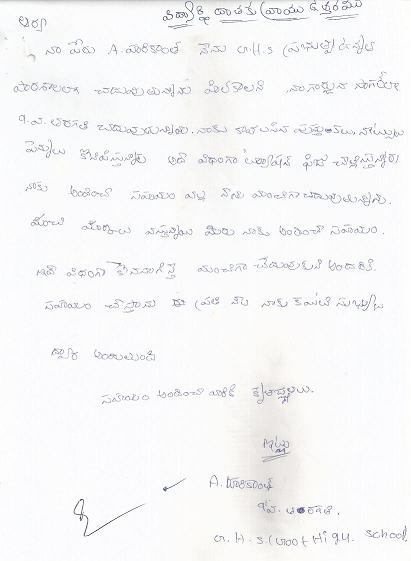 విద్యార్థి దాతకు వ్రాయు ఉత్తరము
నా పేరు A. హరికాంత్ నేను G.H.S ఉన్నత
పాఠశాలలో చదువుతున్నాను
9.వ. తరగతి చదువుతున్నాను. నాకు కావలసిన పుస్తకాలు, నోట్సులు
పెన్నులు కొనిపిస్తున్నారు అదే విధంగా ట్యూషన్ ఫీజు చెల్లిస్తున్నారు
నాకు అందించే సహాయం వల్ల నేను మంచిగా చదువుతున్నాను.
మంచి మార్కులు వస్తున్నాయి మీరు నాకు అందించే సహాయం.
ఇదే విధంగా కొనసాగిస్తే మంచిగా చదువుకుని అందరికి
సహాయం చేస్తాను ఈ ప్రతి నెల నాకు కమిటి సభ్యుల
ద్వారా అందుతుంది
సహాయం అందించే వారికి కృతజ్ఞతలు.
ఇట్లు
A. హరికాంత్
9వ. తరగతి.
G.H.S (Govt High school)